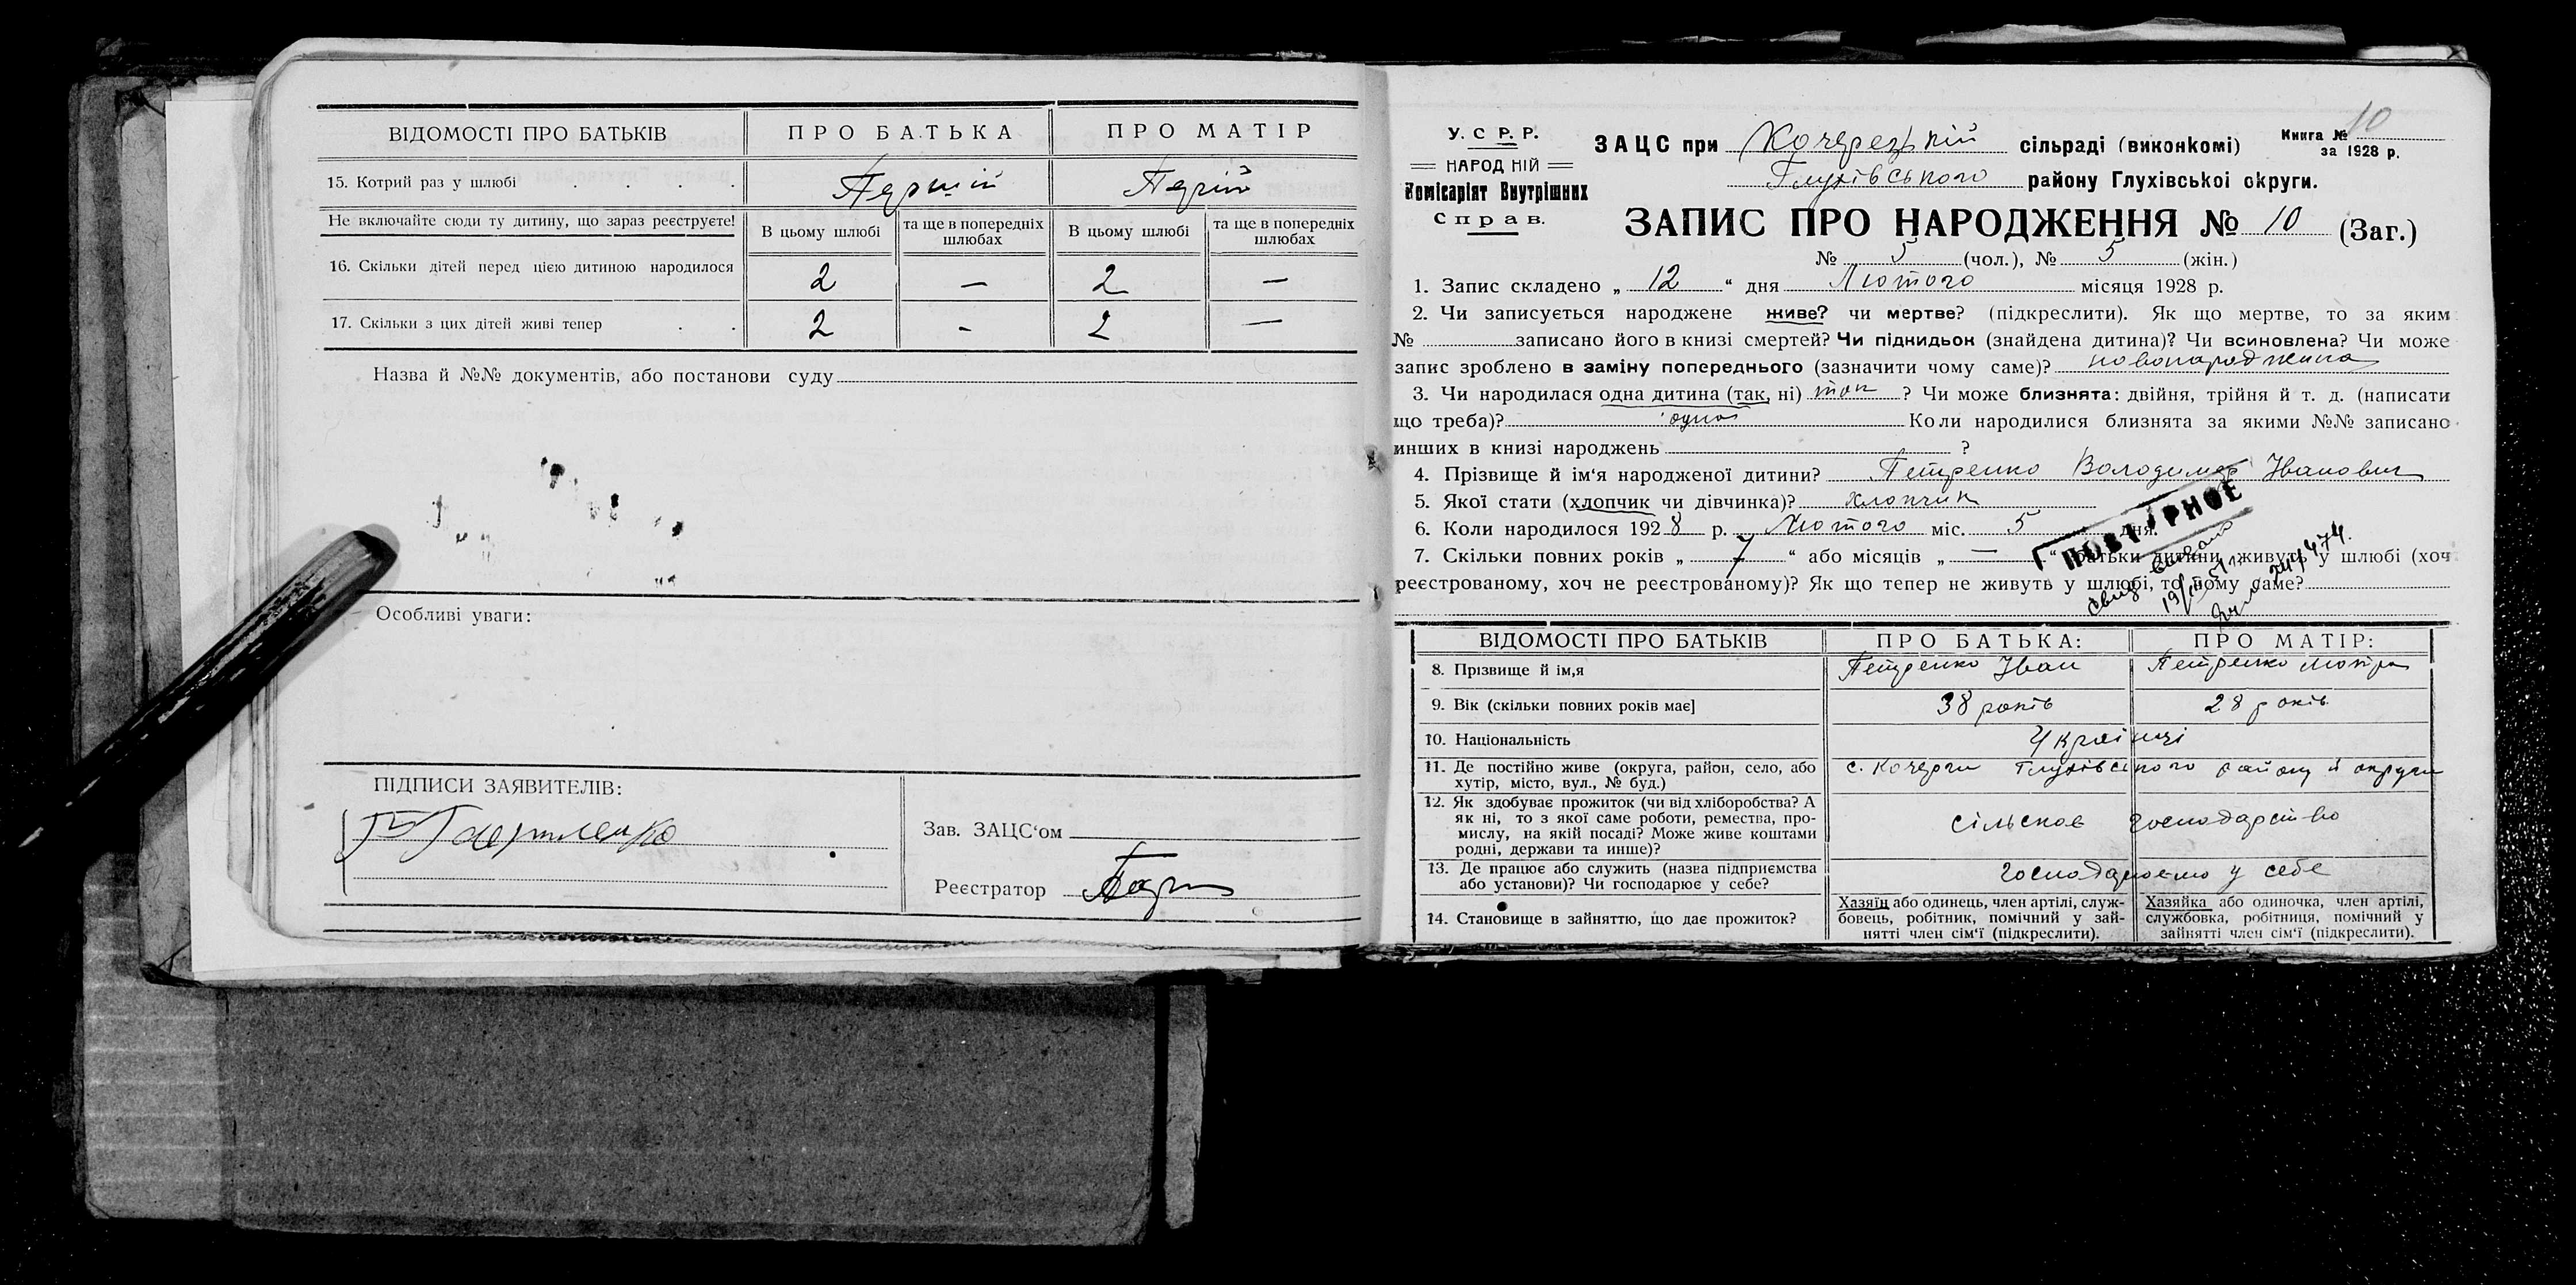 ВІДОМОСТІ ПРО БАТЬКІВ ПРО БАТЬКА ПРО МАТІР
15. Котрий раз у шлюбі Перший
Не включайте сюди ту дитину, що зараз реєструєте! В цьому шлюбі та ще в попередніх шлюбах В цьому шлюбі та ще в попередніх шлюбах
16. Скільки дітей перед цією дитиною народилося 2 — 2 —
17. Скільки з цих дітей живі тепер 2 - 2 —
Назва й №№ документів, або постанови суду
Особливі уваги:
ПІДПИСИ ЗАЯВИТЕЛІВ:
Зав. ЗАЦС'ом
Реєстратор
У. С Р. Р.
НАРОДНІЙ
Комісаріят Внутрішних
Справ.
ЗАЦС при сільраді (виконкомі)
Книга № 10
за 1928 р.
Глухівського району Глухівської округи.
ЗАПИС ПРО НАРОДЖЕННЯ № 10 (Заг.)
№ 5 (чол.), № 5 (жін.)
1. Запис складено „ 12 “ дня Лютого місяця 1928 р.
2. Чи записується народжене живе? чи мертве? (підкреслити). Як що мертве, то за яким
№ записано його в книзі смертей? Чи підкидьок (знайдена дитина)? Чи всиновлена? Чи може
запис зроблено в заміну попереднього (зазначити чому саме)? новонароджена
3. Чи народилася одна дитина (так, ні) так ? Чи може близнята: двійня, трійня й т. д. (написати
що треба)? одна Коли народилися близнята за якими №№ записано
инших в книзі народжень ?
4. Прізвище й ім'я народженої дитини? Петренко Володимир Іванович
5. Якої стати (хлопчик чи дівчинка)? хлопчик
6. Коли народилося 1928 р. Лютого міс. 5 дня.
7. Скільки повних років „ 7 “ або місяців „ — “ батьки дитини живуть у шлюбі (хоч
реєстрованому, хоч не реєстрованому)? Як що тепер не живуть у шлюбі, то чому саме?
ПОВТОРНОЕ
ВІДОМОСТІ ПРО БАТЬКІВ ПРО БАТЬКА: ПРО МАТІР:
8. Прізвище й ім,я Петренко Іван Петренко Мотря
9. Вік (скільки повних років має] 38 років 28 років
10. Національність Українці
11. Де постійно живе (округа, район, село, або
хутір, місто, вул., № буд.) с. Кочерги Глухівського району й округи
12. Як здобуває прожиток (чи від хліборобства? А
як ні, то з якої саме роботи, ремества, про-
мислу, на якій посаді? Може живе коштами
родні, держави та инше)? сільське господарство
13. Де працює або служить (назва підприємства
або установи)? Чи господарює у себе? господарюємо у себе
14. Становище в зайняттю, що дає прожиток?
Хазяїн або одинець, член артілі, служ-
бовець, робітник, помічний у зай-
нятті член сім'ї (підкреслити).
Хазяйка або одиночка, член артілі,
службовка, робітниця, помічний у
зайнятті член сім'ї (підкреслити).